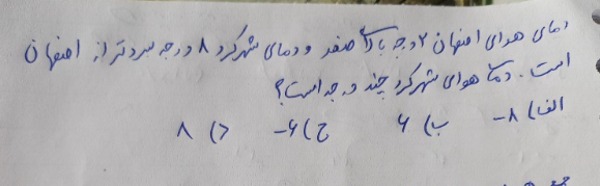 دمای هوای اصفهان ۲ درجه بالای صفر و دمای شهرکرد ۸ درجه سردتر از اصفهان
است. دمای هوای شهرکرد چند درجه است؟
الف) ۸- ب) ۶ ج) ۶- د) ۸